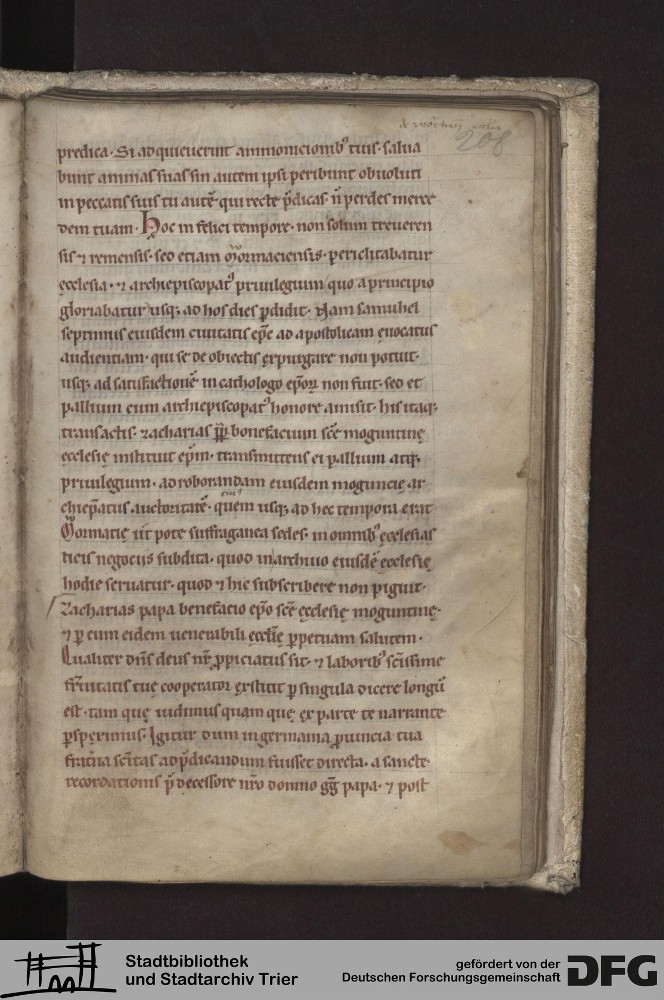 208
predica. Si adquieuerint ammonicionibꝰ tuis. salua
bunt animas suas sin autem ipsi peribunt obuoluti
in peccatis suis tu autē. qui recte p̄dicas. n̄ perdes merce
dem tuam. Hoc infelici tempore. non solum treueren
sis ⁊ remensis. sed etiam Wormaciensis. periclitabatur
ęcclesia. ⁊ archiepiscopatꝰ priuilegium quo a principio
gloriabatur usq; ad hos dies p̄didit. Nam samuhel
septimus eiusdem ciuitatis ep̄c ad apostolicam euocatus
audientiam. qui se de obiectis expurgare non potuit.
usq; ad satisfactionē in cathologo ep̄oꝝ non fuit. sed et
pallium cum archiepiscopatꝰ honore amisit. his itaq;
transactis. zacharias pp̄ bonefacium sc̄e moguntinę
ęcclesię instituit ep̄m. transmittens ei pallium atq;
priuilegium. ad roborandam eiusdem moguncię ar
chiep̄atus auctoritatē. quem usq; ad hec tempora erat
cui
Wormatię ut pote suffraganea sedes. in omnibꝰ ęcclesias
ticis negociis subdita. quod in archiuo eiusdē ecclesię
hodie seruatur. quod ⁊ hic subscribere non piguit.
Zacharias papa benefacio ep̄o sc̄e ęcclesię moguntinę.
⁊ ꝑ eum eidem uenerabili ęccl̄ię ꝑpetuam salutem.
Qualiter dn̄s deus nr̄ ꝓpiciatus sit. ⁊ laboribꝰ sc̄issime
fr̄nitatis tuę cooperator extitit ꝑ singula dicere longū
est. tam quę uidimus quam quę ex parte te narrante
ꝑspeximus. Igitur dum in germania ꝓuincia tua
frat̄na sc̄itas ad p̄dicandum fuisset directa. a sancte
recordationis p̄decessore nr̄o domno gḡ papa. ⁊ post
Stadtbibliothek
und Stadtarchiv Trier
gefördert von der
Deutschen Forschungsgemeinschaft
DFG